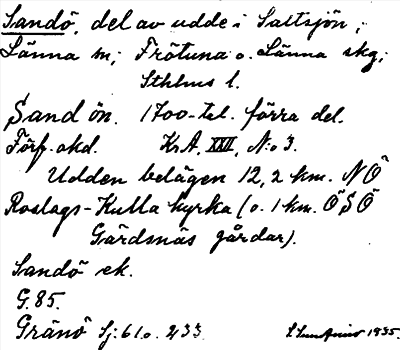 Sandö, del av udde i Saltsjön;
Länna sn; Frötuna o. Länna skg;
Sthlms l.
Sandön. 1700-tal. förra del.
Förf. okd. KrA, XXII, N:o 3.
Udden belägen 12,2 km. NÖ
Roslags-Kulla kyrka (o. 1 km. ÖSÖ
Gärdsnäs gårdar).
Sandö ek.
G. 85.
Gränö Sj: 61 o. 233
1935.